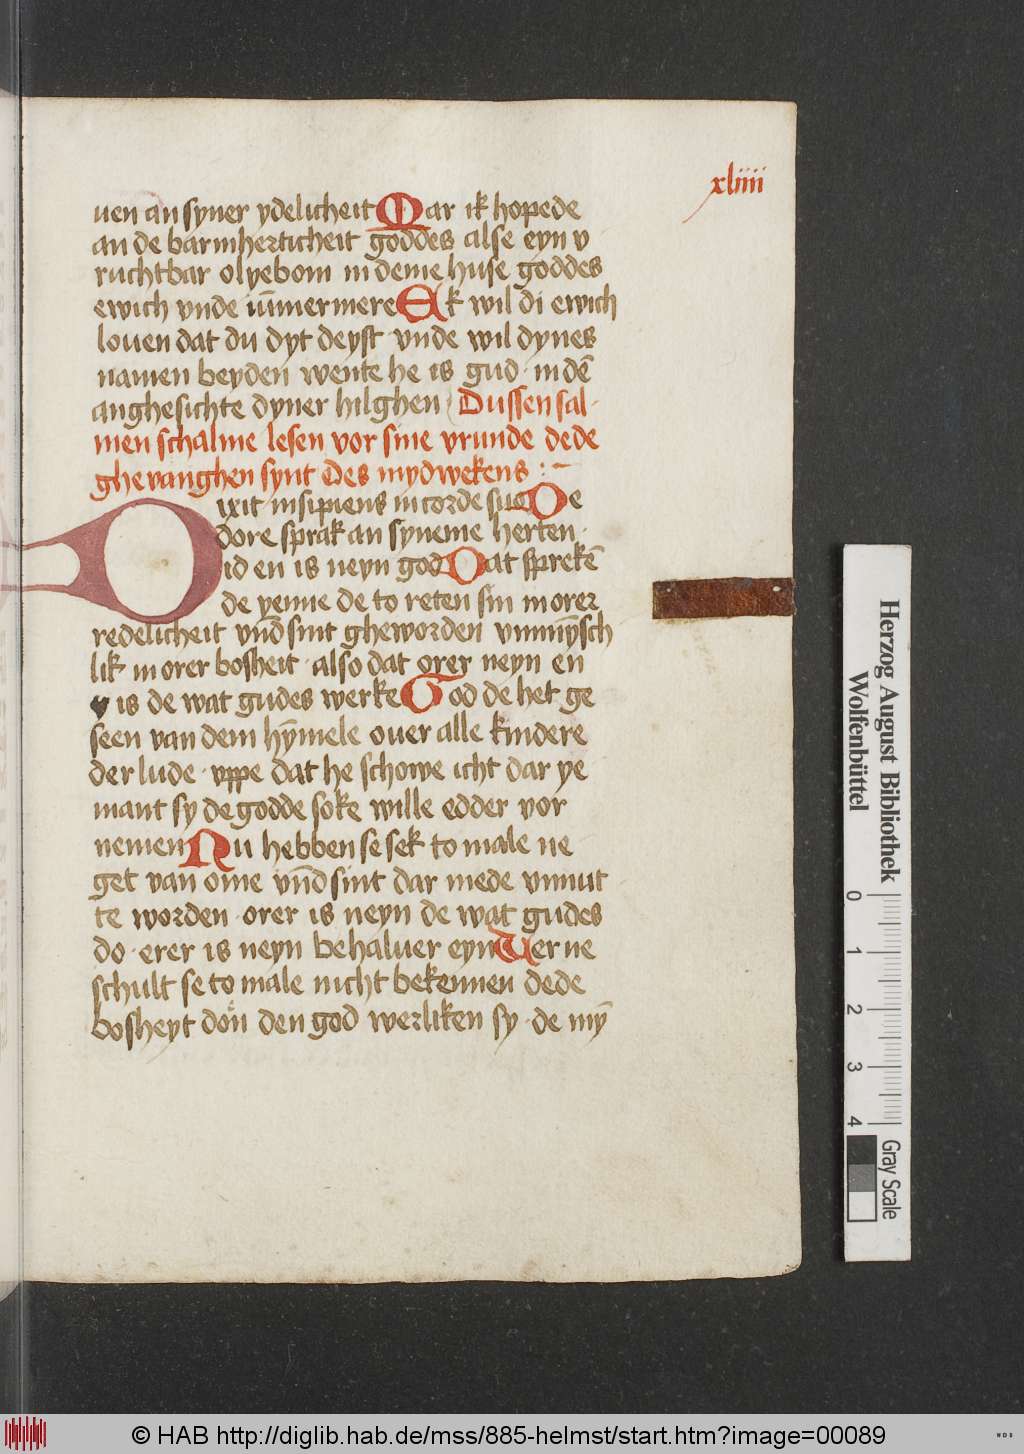 xliiii
uen an syner ydelicheit Mar ik hopede
an de barmherticheit goddes alse eyn v
ruchtbar olyebom in deme huse goddes
ewich vnde ūmermere Ek wil di ewich
louen dat du dyt deyst vnde wil dynes
namen beyden wente he is gud · in dē
anghesichte dyner hilghen Dussen sal-
men schalme lesen vor sine vrunde dede
ghevanghen synt Des mydwekens :~
Dixit insipiens in corde suo De
dore sprak an syneme herten ·
id en is neyn god Dat sprekē
de yenne de to reten sin in orer
redelicheit vn̄d sint gheworden vnmīsch
lik in orer bosheit · also dat orer neyn en
is de wat gudes werke God de het ge
seen van dem hȳmele ouer alle kindere
der lude · vppe dat he schowe icht dar ye
mant sy de godde soke wille edder vor
nemen Nu hebben se sek to male ne
get van ome vn̄d sint dar mede vnnut
te worden · orer is neyn de wat gudes
do · erer is neyn behaluer eyn Wer ne
schult se to male nicht bekennen dede
bosheyt don den god werliken sy · de mȳ
Herzog August Bibliothek
Wolfenbüttel
0 1 2 3 4
Gray Scale
© HAB http://diglib.hab.de/mss/885-helmst/start.htm?image=00089